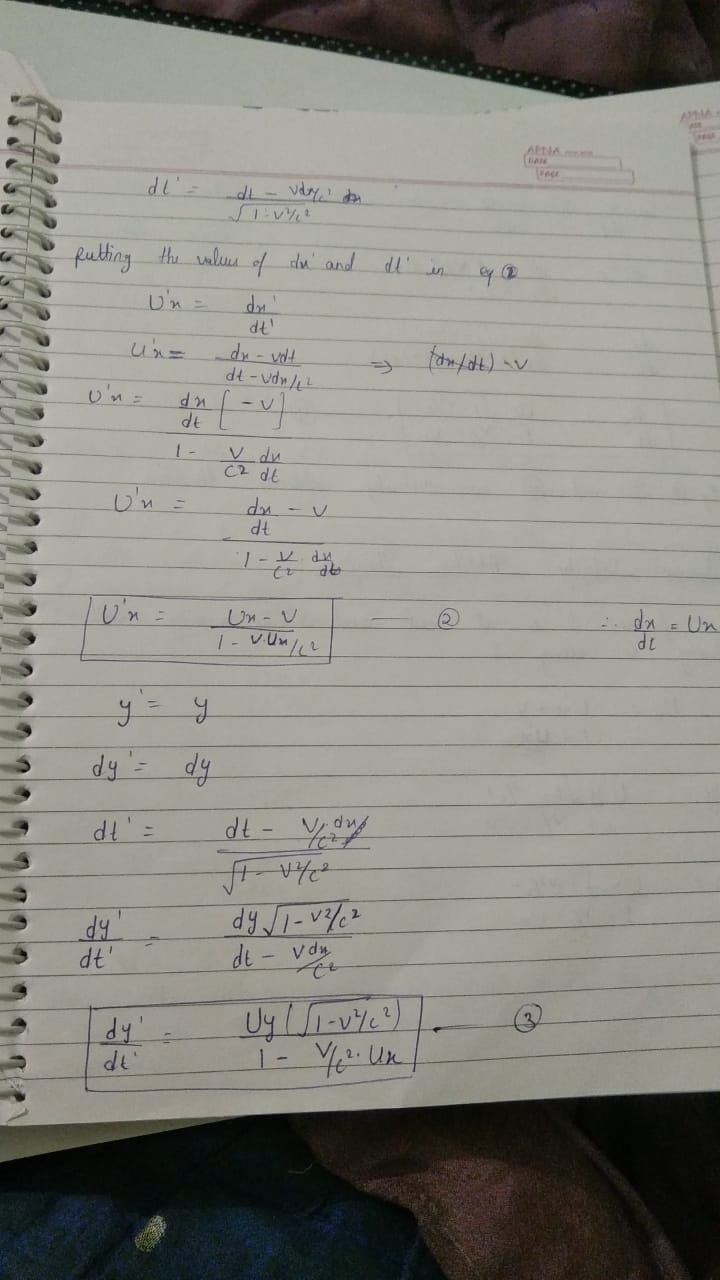 APNA
DATE
PAGE
APNA
dt' = dt - vdx/c² / √1-v²/c²
Putting the values of dx' and dt' in eq ①
U'x = dx' / dt'
U'x = dx - vdt / dt - vdx/c² ⇒ (dx/dt) - v
U'x = dx/dt [ - v] / 1 - v/c² dx/dt
U'x = dx/dt - v / 1 - v/c² . dx/dt
U'x = Ux - v / 1 - v.Ux/c² — ② ∴ dx/dt = Ux
y' = y
dy' = dy
dt' = dt - v/c² . dx / √1 - v²/c²
dy'/dt' = dy √1 - v²/c² / dt - vdx/c²
dy'/dt' = Uy (√1-v²/c²) / 1 - v/c² . Ux — ③